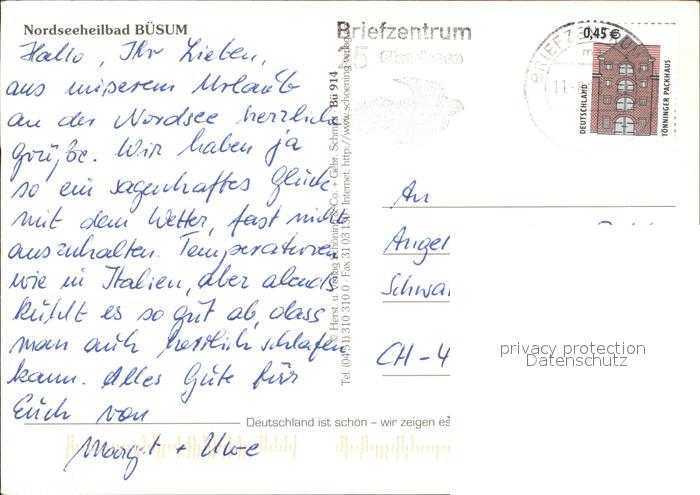 Nordseeheilbad BÜSUM
Hallo, Ihr Lieben,
aus unserem Urlaub
an der Nordsee herzliche
Grüße. Wir haben ja
so ein sagenhaftes Glück
mit dem Wetter, fast nicht
auszuhalten. Temperaturen
wie in Italien, aber abends
kühlt es so gut ab, dass
man auch herrlich schlafen
kann. Alles Gute für
Euch von
Margit + Uwe
Deutschland ist schön – wir zeigen es
Bü 914
Tel. (04 51) 310 310 0 · Fax 31 03 131 · Internet: http://www.schoening-verlag
Briefzentrum
25
BRIEFZENTRUM
11.
0,45 €
DEUTSCHLAND
TÖNNINGER PACKHAUS
An
Angel
Schwa
CH-4
privacy protection
Datenschutz